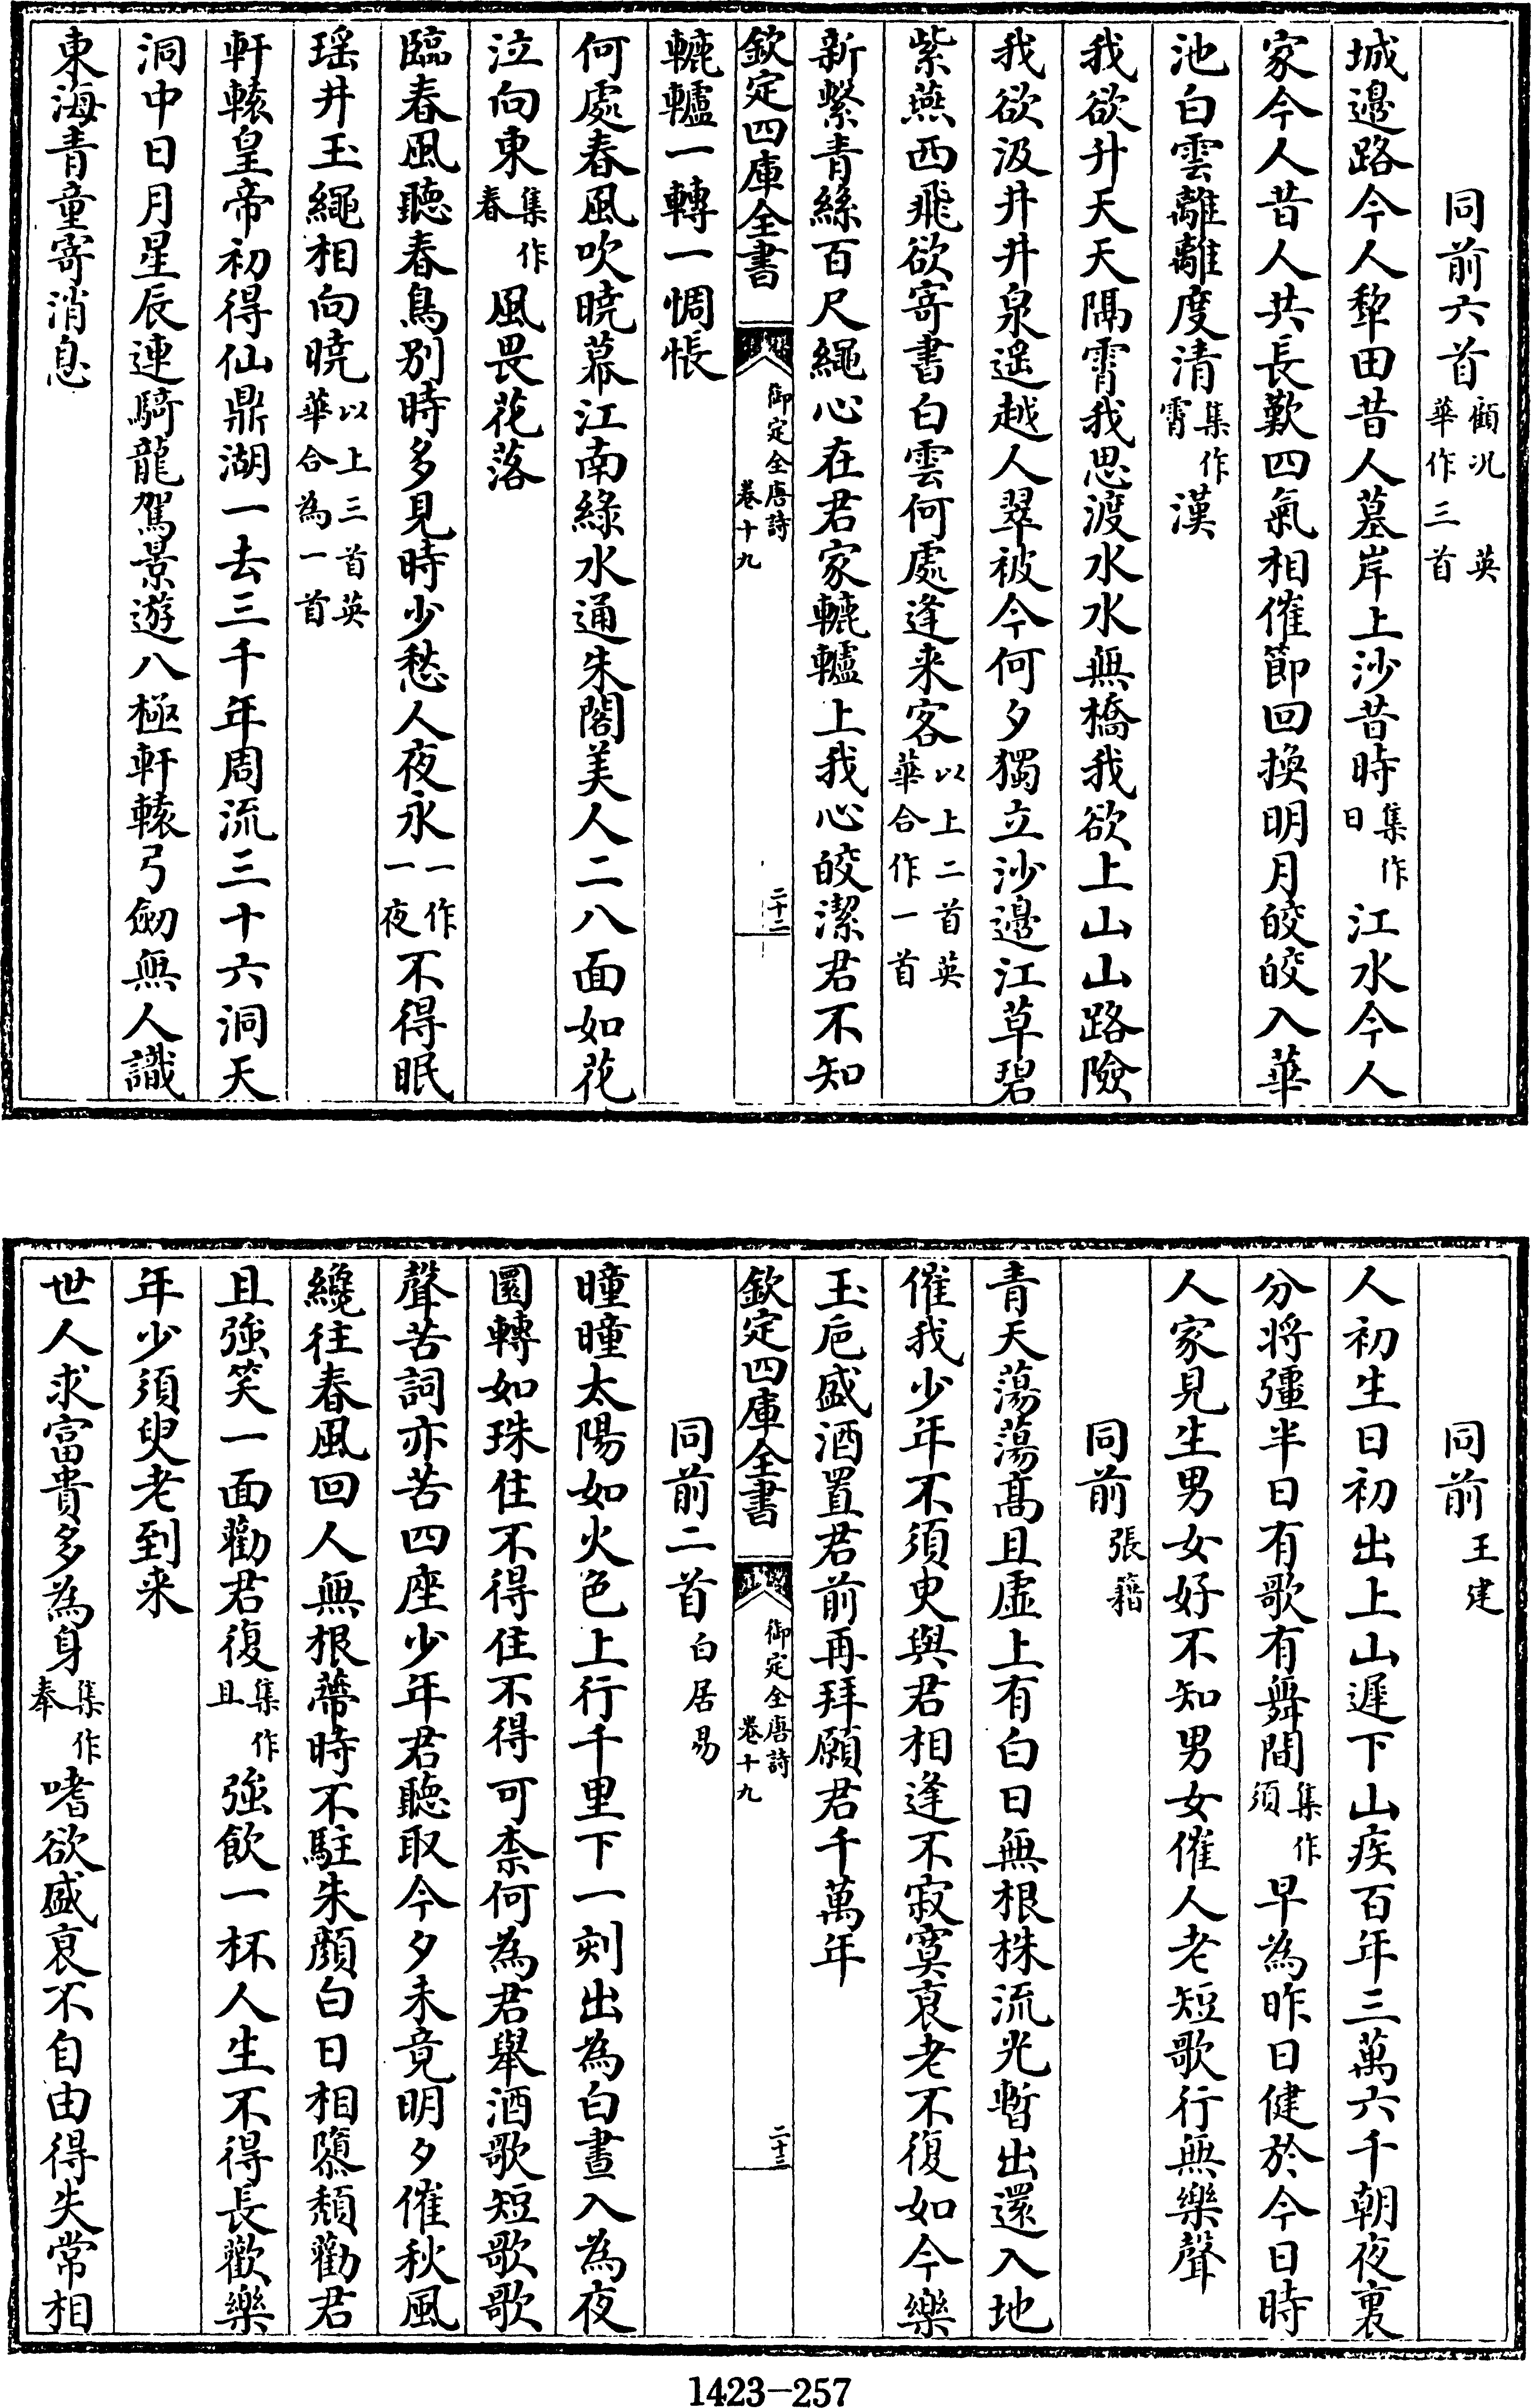 同前六首顧况英華作三首
城邉路今人犂田昔人墓岸上沙昔時集作日江水今人
家今人昔人共長歎四氣相催節回換明月皎皎入華
池白雲離離度清集作霄漢
我欲升天天隔霄我思渡水水無橋我欲上山山路險
我欲汲井井泉遥越人翠被今何夕獨立沙邉江草碧
紫燕西飛欲寄書白雲何處逢来客以上二首英華合作一首
新繫青絲百尺繩心在君家轆轤上我心皎潔君不知
欽定四庫全書
御定全唐詩卷十九
二十二
轆轤一轉一惆悵
何處春風吹曉幕江南綠水通朱閣美人二八面如花
泣向東集作春風畏花落
臨春風聽春鳥别時多見時少愁人夜永一作一夜不得眠
瑶井玉繩相向曉以上三首英華合為一首
軒轅皇帝初得仙鼎湖一去三千年周流三十六洞天
洞中日月星辰連騎龍駕景遊八極軒轅弓劒無人識
東海青童寄消息
同前王建
人初生日初出上山遲下山疾百年三萬六千朝夜裏
分將彊半日有歌有舞間集作須早為昨日健於今日時
人家見生男女好不知男女催人老短歌行無樂聲
同前張籍
青天蕩蕩髙且虚上有白日無根株流光暫出還入地
催我少年不須臾與君相逢不寂寞衰老不復如今樂
玉巵盛酒置君前再拜願君千萬年
欽定四庫全書
御定全唐詩卷十九
二十三
同前二首白居易
曈曈太陽如火色上行千里下一刻出為白晝入為夜
圜轉如珠住不得住不得可柰何為君舉酒歌短歌歌
聲苦詞亦苦四座少年君聽取今夕未竟明夕催秋風
纔往春風回人無根蒂時不駐朱顔白日相隳頽勸君
且強笑一面勸君復集作且強飲一杯人生不得長歡樂
年少須臾老到来
世人求富貴多為身集作奉嗜欲盛衰不自由得失常相
1423-257